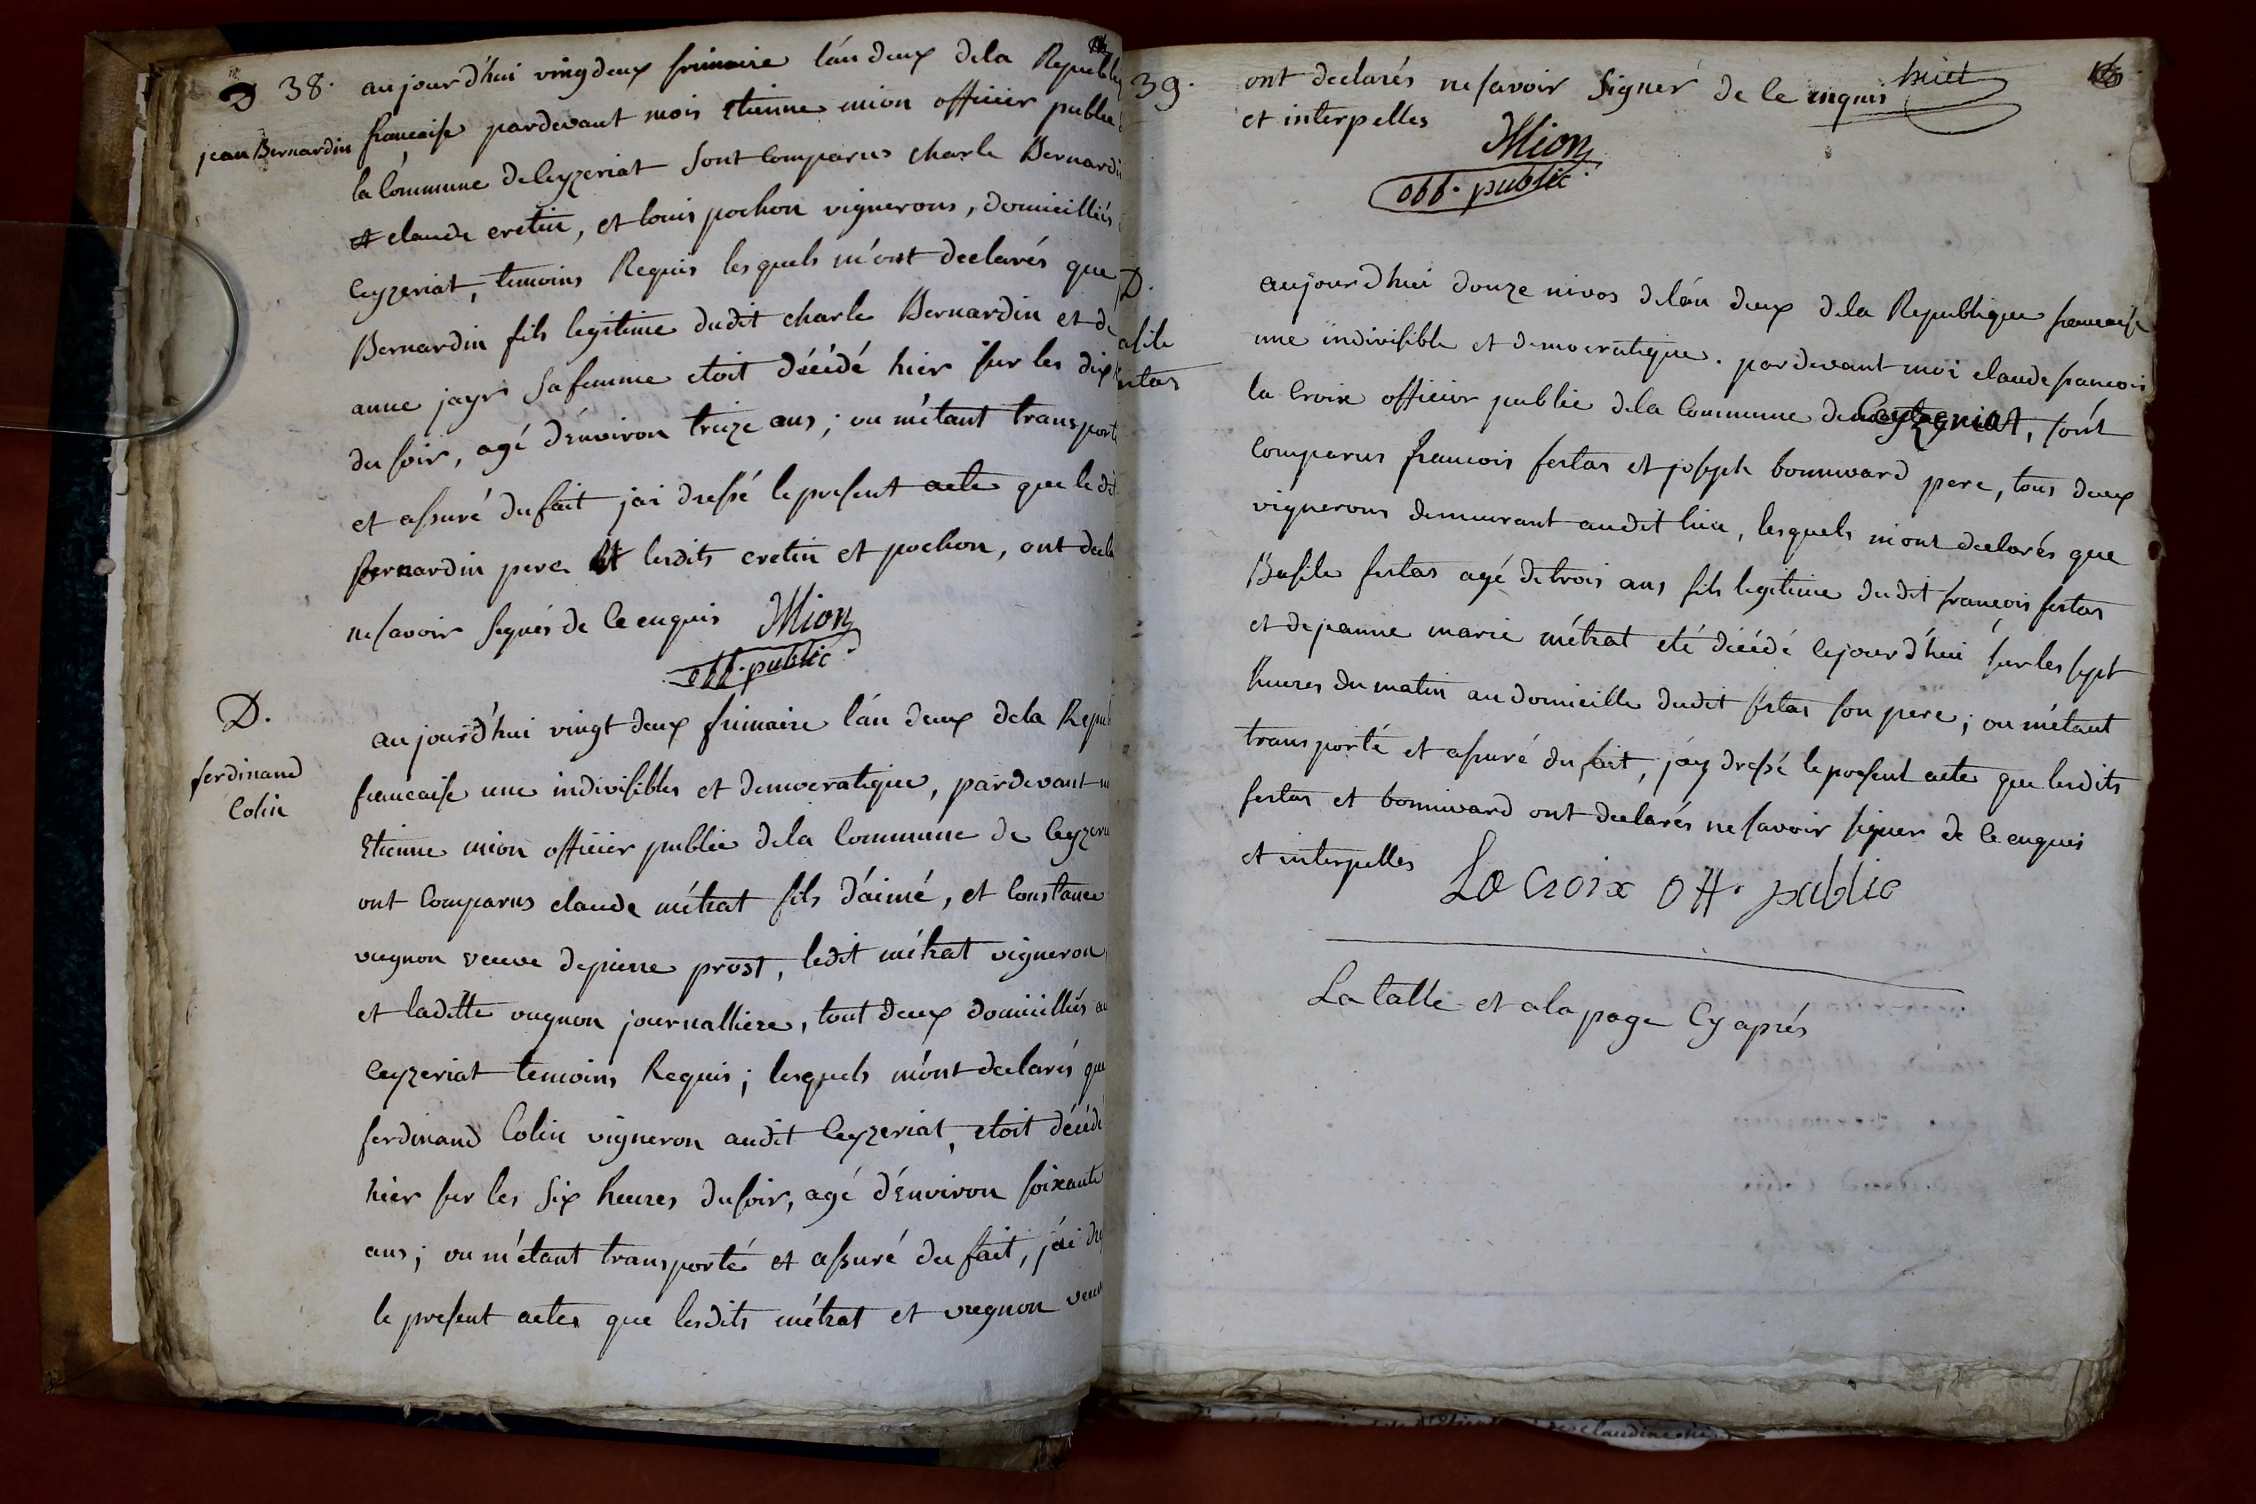 D 38.
jean Bernardin
aujourd'hui vingdeux frimaire l'án deux dela Republ
francaise pardevant mois Etienne mion officier public
la Commune de Ceyzeriat sont comparus charle Bernardi
et claude cretin, et louis pochon vignerons, domicilliés
Ceyzeriat, temoins Requis lesquels m'ont declarés que
Bernardin fils legitime dudit charle Bernardin et de
anne jayr sa femme etoit décédé hier sur les dix
du soir, agé d'Environ treize ans; ou m'etant transporté
et assuré du fait jai dressé le present acte que le dit
Bernardin pere et lesdits cretin et pochon, ont decla
ne savoir signés de Ce enquis Mion
off. public
D.
ferdinand
Colin
aujourd'hui vingt deux frimaire l'án deux dela Repub
francaise une indivisibles et democratique, pardevant m
Etienne mion officier public dela Commune de Ceyzeria
ont Comparus claude métrat fils d'aimé, et Constance
vugnon veuve de pierre prost, ledit métrat vigneron
et laditte vugnon journalliere, tout deux domicilliés au
Ceyzeriat temoins Requis; lesquels m'ont declarés que
ferdinand Colin vigneron audit Ceyzeriat, etoit décédé
hier sur les six heures du soir, agé d'Environ soixante
ans; ou m'etant transporté et assuré du fait, j'ai dre
le present actes que lesdits métrat et vugnon veuv
39.
ont declarés ne savoir Signer de Ce enquis
et interpelles Mion
off. public
D.
asile
ertas
aujourdhui douze nivos del'án deux dela Republique francaise
une indivisible et democratique. pardevant moi claude francois
la Croix officier public dela Commune de Ceyzeriat, sont
Comparus francois fertas et joseph bonnivard pere, tous deux
vignerons demeurant audit lieu, lesquels m'ont declarés que
Basile fertas agé de trois ans fils legitime dudit françois fertas
et de jeanne marie métrat eté décédé Cejourd'hui sur les sept
heures du matin au domicille dudit fertas son pere; ou m'étant
transporté et assuré du fait, j'ay dressé le present acte que lesdits
fertas et bonnivard ont declarés ne savoir signer de Ce enquis
et interpelles La Croix off. public
La table et a la page Cy aprés